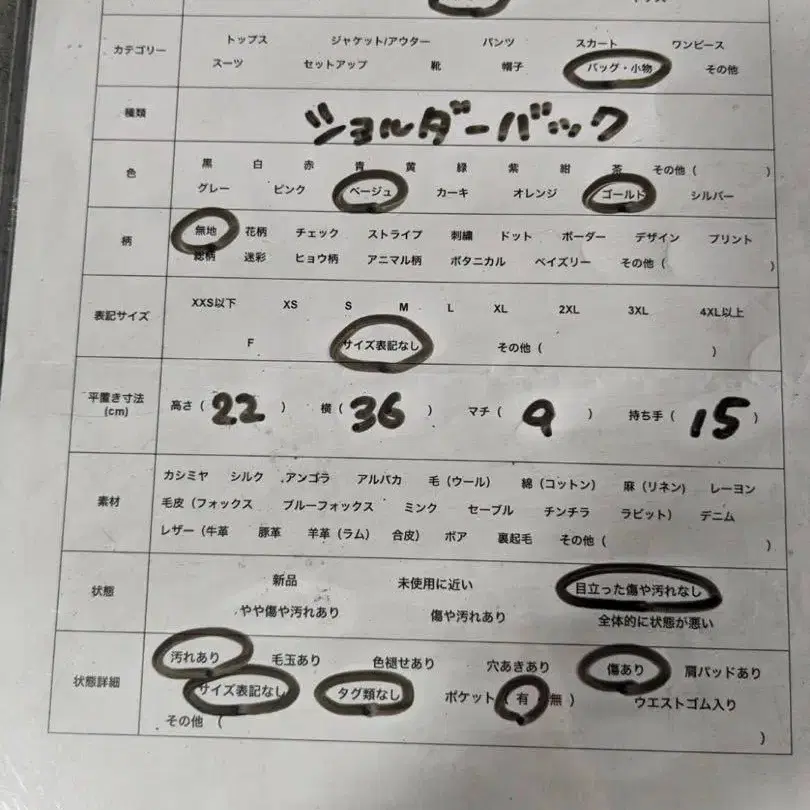 カテゴリー
トップス ジャケット/アウター パンツ スカート ワンピース
スーツ セットアップ 靴 帽子 バッグ・小物 その他
種類
ショルダーバック
色
黒 白 赤 青 黄 緑 紫 紺 茶 その他 ( )
グレー ピンク ベージュ カーキ オレンジ ゴールド シルバー
柄
無地 花柄 チェック ストライプ 刺繍 ドット ボーダー デザイン プリント
総柄 迷彩 ヒョウ柄 アニマル柄 ボタニカル ペイズリー その他 ( )
表記サイズ
XXS以下 XS S M L XL 2XL 3XL 4XL以上
F サイズ表記なし その他 ( )
平置き寸法
(cm)
高さ ( 22 ) 横 ( 36 ) マチ ( 9 ) 持ち手 ( 15 )
素材
カシミヤ シルク アンゴラ アルパカ 毛 (ウール) 綿 (コットン) 麻 (リネン) レーヨン
毛皮 (フォックス ブルーフォックス ミンク セーブル チンチラ ラビット) デニム
レザー (牛革 豚革 羊革 (ラム) 合皮) ボア 裏起毛 その他 ( )
状態
新品 未使用に近い 目立った傷や汚れなし
やや傷や汚れあり 傷や汚れあり 全体的に状態が悪い
状態詳細
汚れあり 毛玉あり 色褪せあり 穴あきあり 傷あり 肩パッドあり
サイズ表記なし タグ類なし ポケット ( 有 無 ) ウエストゴム入り
その他 ( )